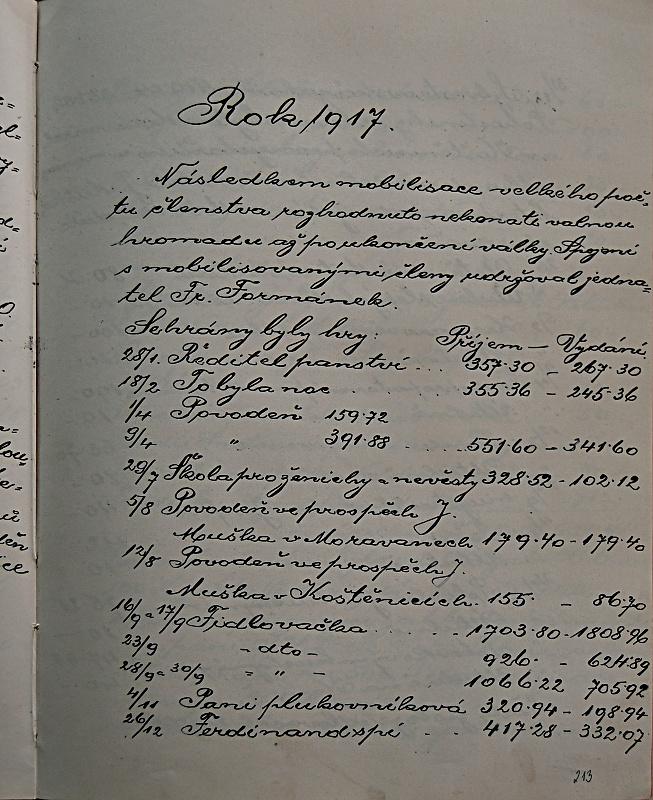 Rok 1917.
Následkem mobilisace velkého poč-
tu členstva rozhodnuto nekonati valnou
hromadu až po ukončení války. Spojení
s mobilisovanými členy udržoval jedna-
tel Fr. Formánek.
Sehrány byly hry: Příjem — Vydání
28/1. Ředitel panství ... 357·30 - 267·30
18/2 To byla noc ... 355·36 - 245·36
1/4 Povodeň 159·72
9/4 " 391·88 .... 551·60 - 341·60
29/7 Škola pro ženichy a nevěsty 328·52 - 102·12
5/8 Povodeň ve prospěch J.
Mouška v Moravanech 179·40 - 179·40
12/8 Povodeň ve prospěch J.
Muška v Koštěnicích. 155· - 86·70
16/9 a 17/9 Fidlovačka ...... 1703·80 - 1808·96
23/9 - dto - 926· - 624·89
28/9 a 30/9 - " - 1066·22 705·92
4/11 Paní plukovníková 320·94 - 198·94
26/12 Ferdinand spí .. 417·28 - 332·07
213